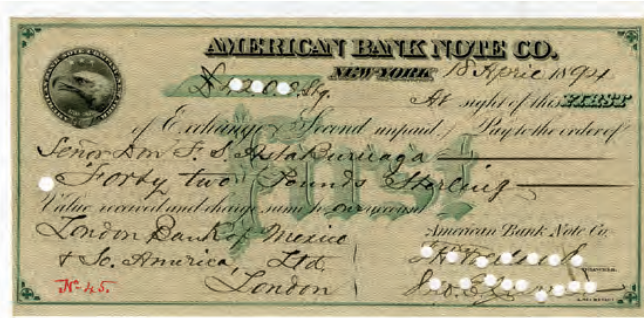 AMERICAN BANK NOTE CO.
NEW-YORK, 18 April 1894
At sight of this FIRST
of Exchange (Second unpaid) Pay to the order of
Señor Don F. S. Asta Buruaga
Forty two Pounds Sterling
Value received and charge same to our account
London Bank of Mexico
American Bank Note Co.
& So. America Ltd.
London
No 45.
First